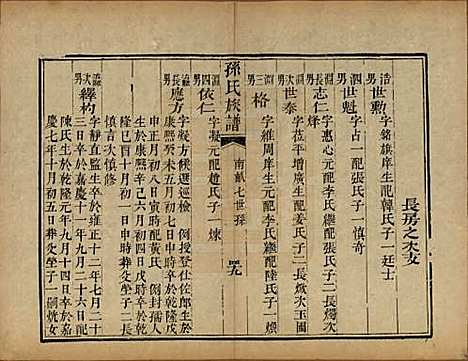 長房之次支
浩男 世勲 字銘旗庠生配韓氏子一廷士
泗男 世魁 字占一配張氏子一慎奇
長男 志仁 字惠心元配李氏繼配張氏子二長燭次
烽
次男 世泰 字莅平增廣生配姜氏子二長燉次玉園
三男 格 字維周庠生元配李氏繼配陸氏子一
四男 依仁 字凝元配趙氏子一煉
孫氏族譜
南貳七世孫
長男 應方 字凝方候選巡檢 例授登仕佐郎生於
康熙癸未五月初七日申時卒於乾隆戊
申正月初八日寅時配黃氏 例封孺人
生於康熙辛巳六月初四日戌時卒於乾
隆己酉十月初一日申時葬艾塋子二長
慎言次慎修
次男 繹杓 字靜直監生卒於雍正十二年七月二十
三日卒於嘉慶十一年九月二十六日配
陳氏生於乾隆元年九月十四日卒於嘉
慶七年十月初五日葬艾塋子一嗣女